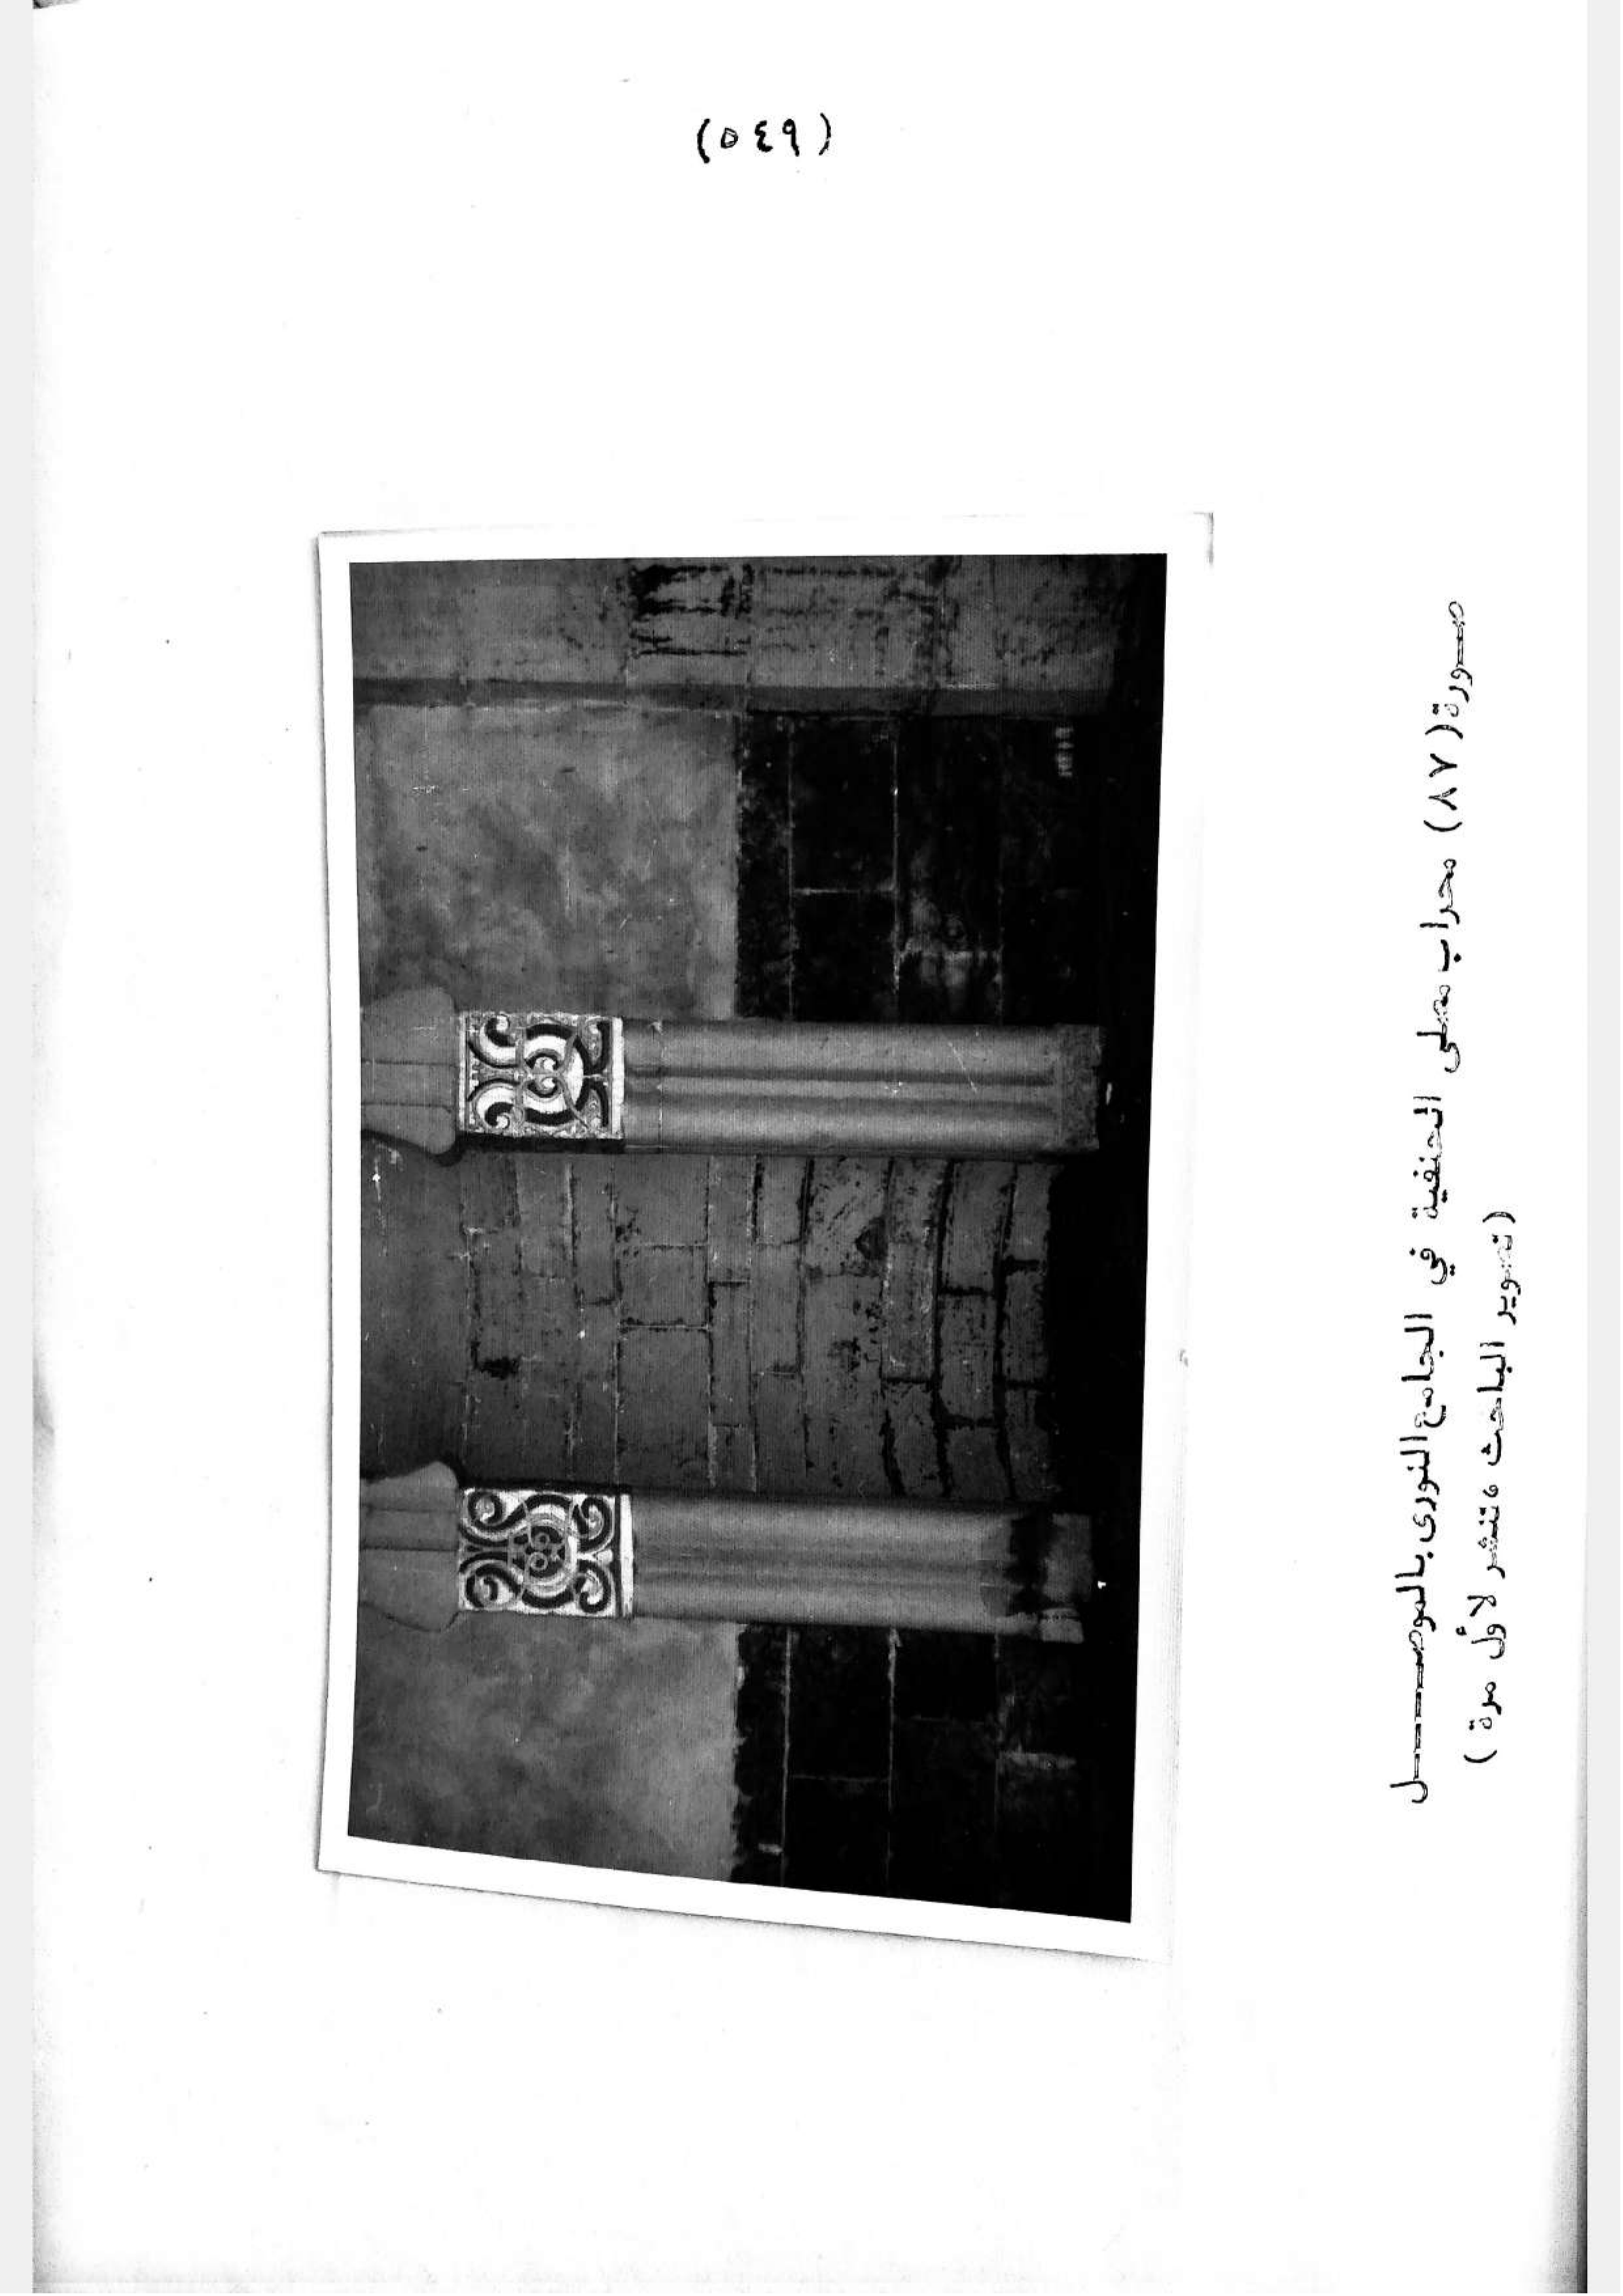 (٥٤٩)
صورة (٨٧) محراب مصلى الحنفية في الجامع النورى بالموصل
(تصوير الباحث ، تنشر لأول مرة)